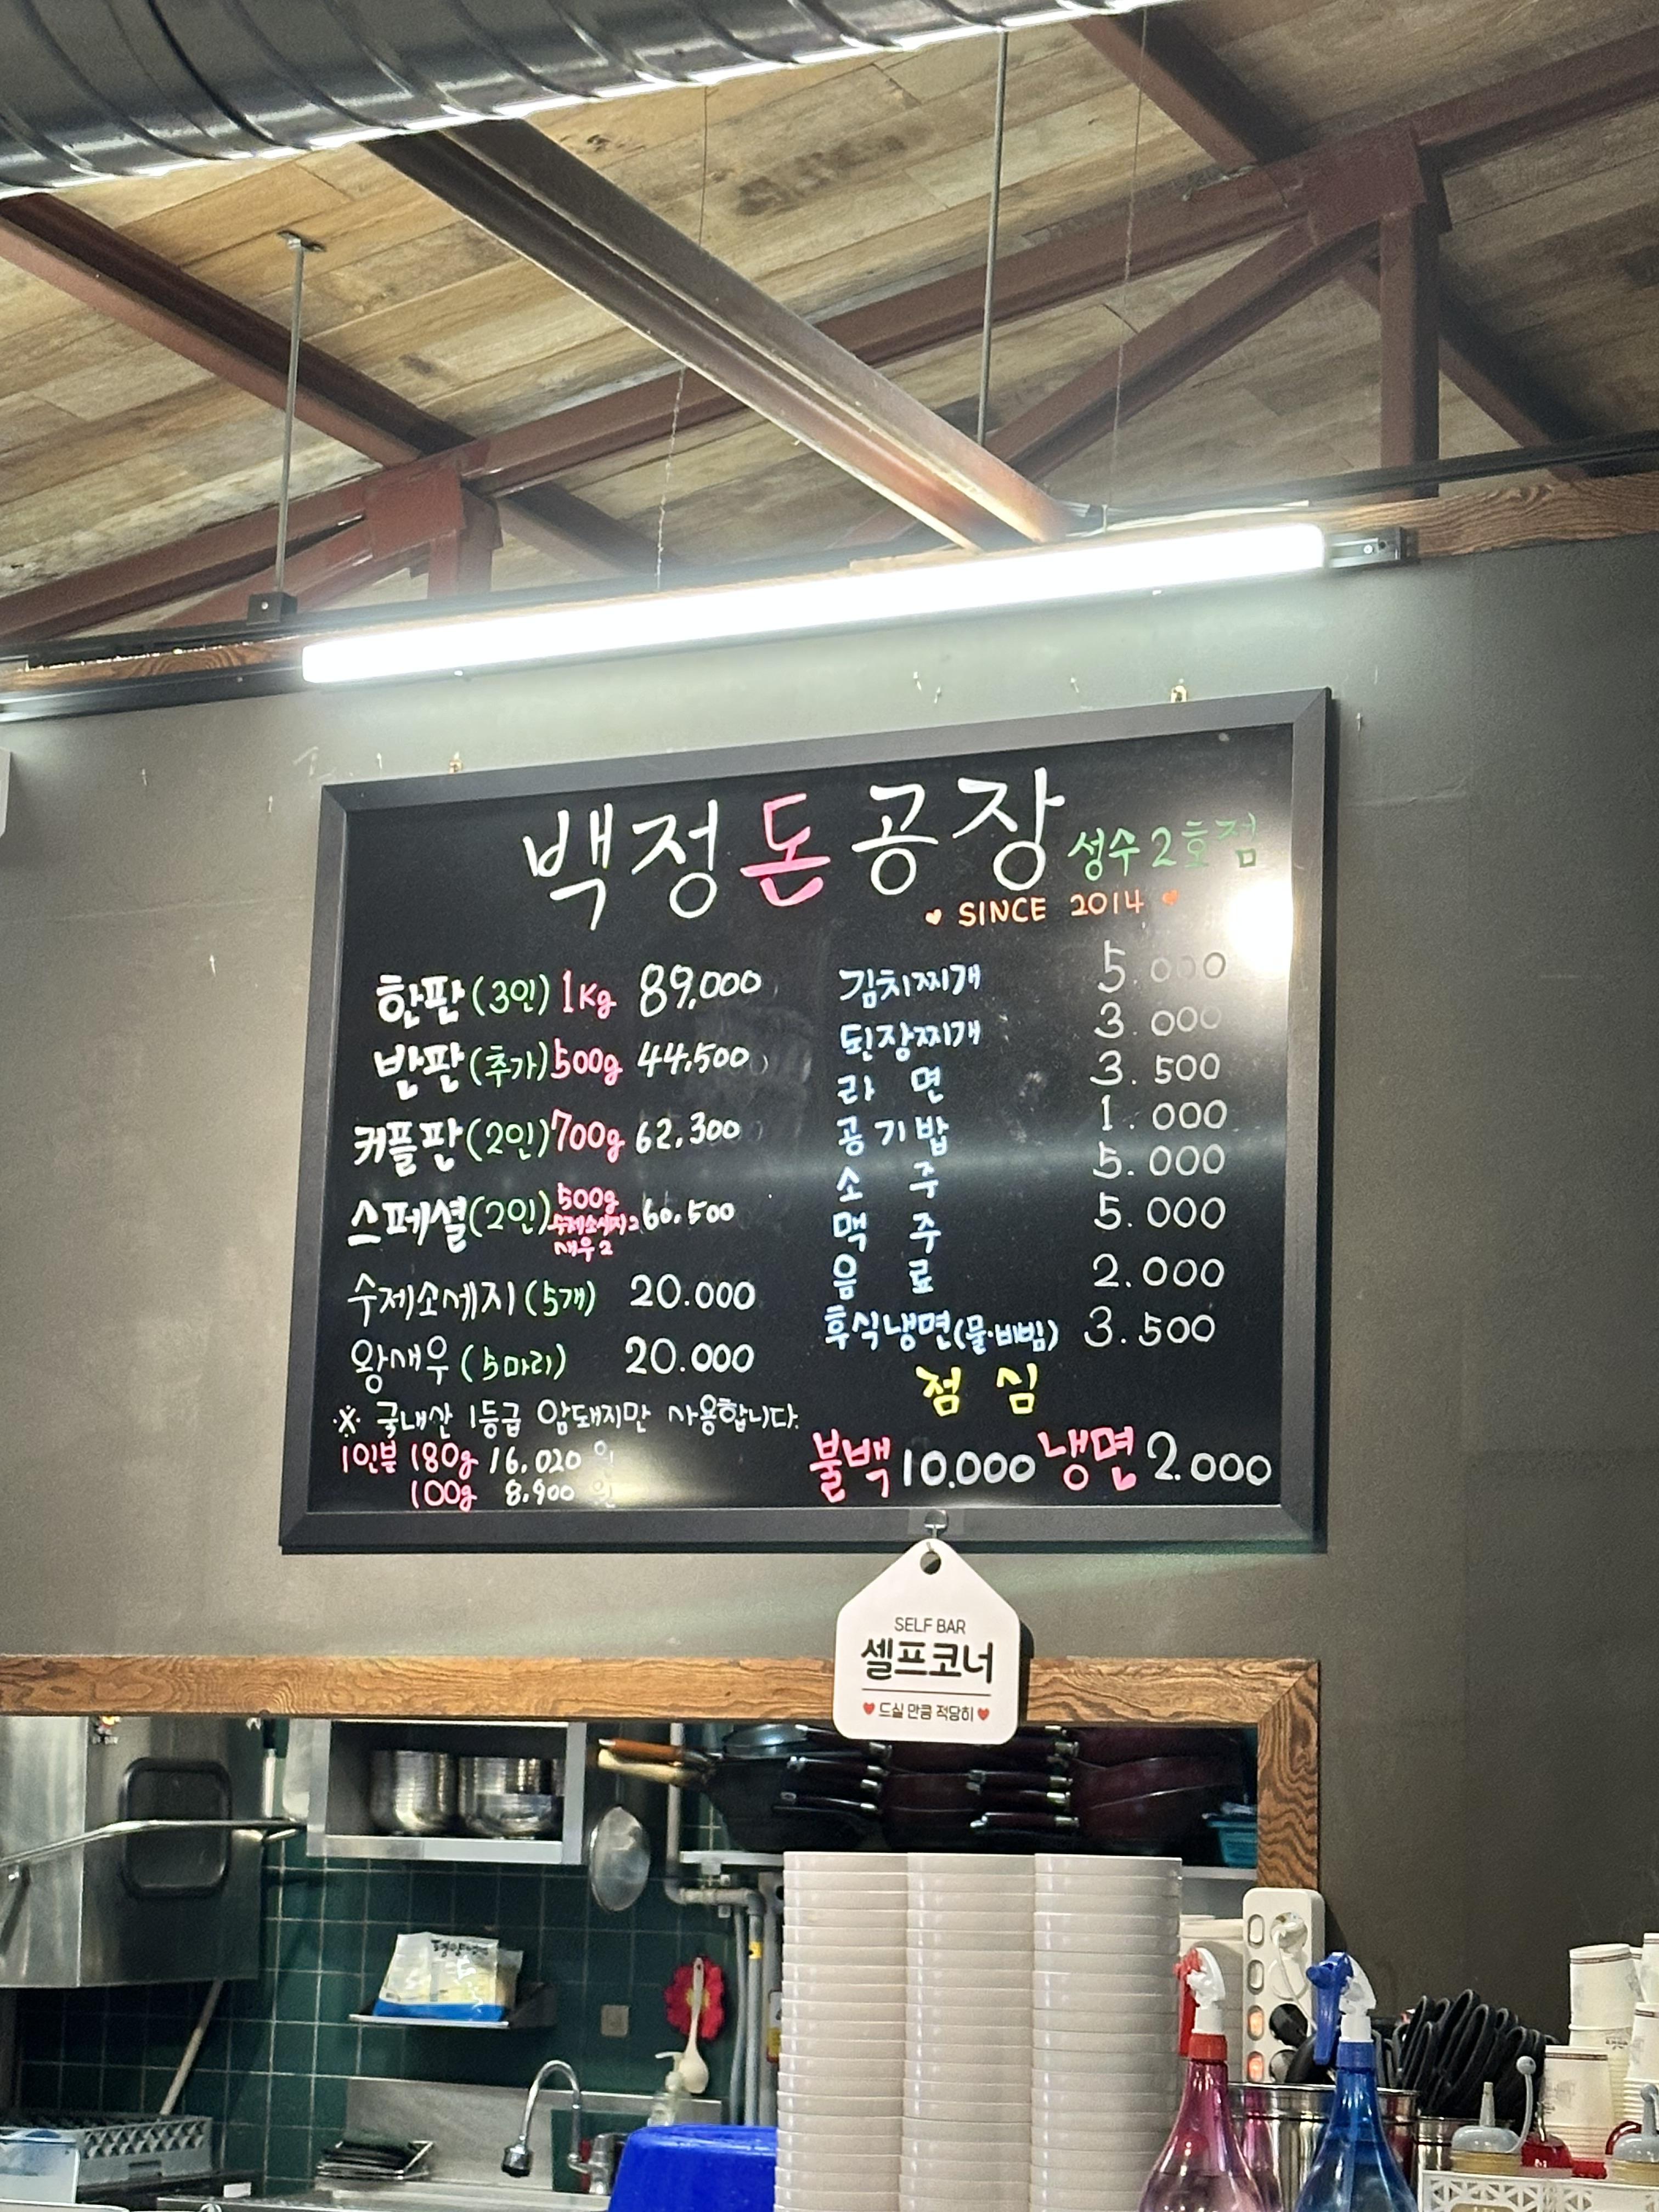 백정돈공장 성수2호점
♥ SINCE 2014 ♥
한판(3인) 1Kg 89,000
반판(추가) 500g 44,500
커플판(2인) 700g 62,300
스페셜(2인) 500g 수제소세지2 새우2 60,500
수제소세지(5개) 20.000
왕새우(5마리) 20.000
※ 국내산 1등급 암돼지만 사용합니다.
1인분 180g 16,020원
100g 8,900원
김치찌개 5.000
된장찌개 3.000
라면 3.500
공기밥 1.000
소주 5.000
맥주 5.000
음료 2.000
후식냉면(물·비빔) 3.500
점심
불백 10.000 냉면 2.000
SELF BAR
셀프코너
♥ 드실 만큼 적당히 ♥